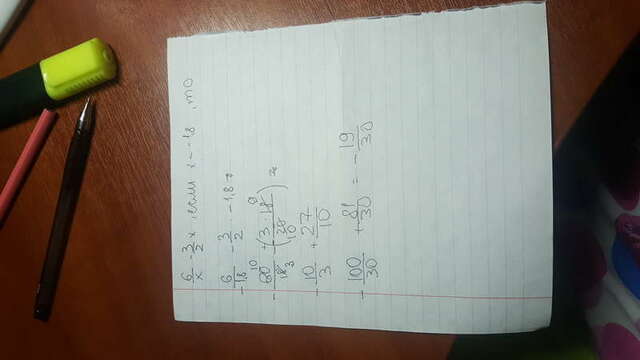 6/x - 3/2 x, если x = -1,8, то
6/-1,8 - 3/2 · -1,8 =
- 60 10/18 3 + (3 · 18 9/20 10) =
- 10/3 + 27/10
- 100/30 + 81/30 = - 19/30